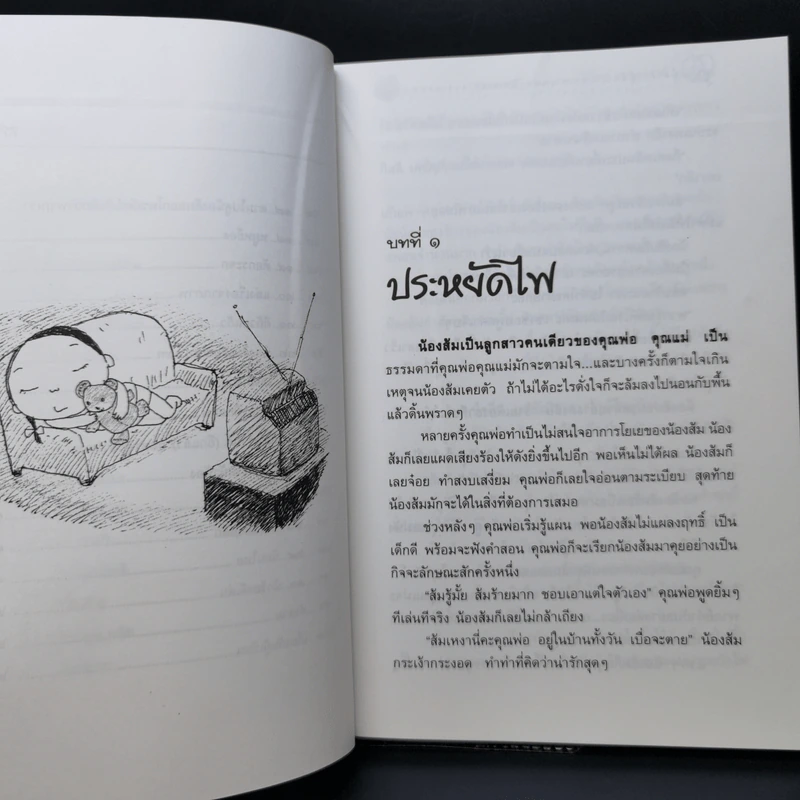 บทที่ ๑
ประหยัดไฟ
น้องส้มเป็นลูกสาวคนเดียวของคุณพ่อ คุณแม่ เป็น
ธรรมดาที่คุณพ่อคุณแม่มักจะตามใจ...และบางครั้งก็ตามใจเกิน
เหตุจนน้องส้มเคยตัว ถ้าไม่ได้อะไรดั่งใจก็จะล้มลงไปนอนกับพื้น
แล้วดิ้นพราดๆ
หลายครั้งคุณพ่อทำเป็นไม่สนใจอาการโยเยของน้องส้ม น้อง
ส้มก็เลยแผดเสียงร้องให้ดังยิ่งขึ้นไปอีก พอเห็นไม่ได้ผล น้องส้มก็
เลยจ๋อย ทำสงบเสงี่ยม คุณพ่อก็เลยใจอ่อนตามระเบียบ สุดท้าย
น้องส้มมักจะได้ในสิ่งที่ต้องการเสมอ
ช่วงหลังๆ คุณพ่อเริ่มรู้แผน พอน้องส้มไม่แผลงฤทธิ์ เป็น
เด็กดี พร้อมจะฟังคำสอน คุณพ่อก็จะเรียกน้องส้มมาคุยอย่างเป็น
กิจจะลักษณะสักครั้งหนึ่ง
"ส้มรู้มั้ย ส้มร้ายมาก ชอบเอาแต่ใจตัวเอง" คุณพ่อพูดยิ้มๆ
ทีเล่นทีจริง น้องส้มก็เลยไม่กล้าเถียง
"ส้มเหงานี่คะคุณพ่อ อยู่ในบ้านทั้งวัน เบื่อจะตาย" น้องส้ม
กระเง้ากระงอด ทำท่าที่คิดว่าน่ารักสุดๆ